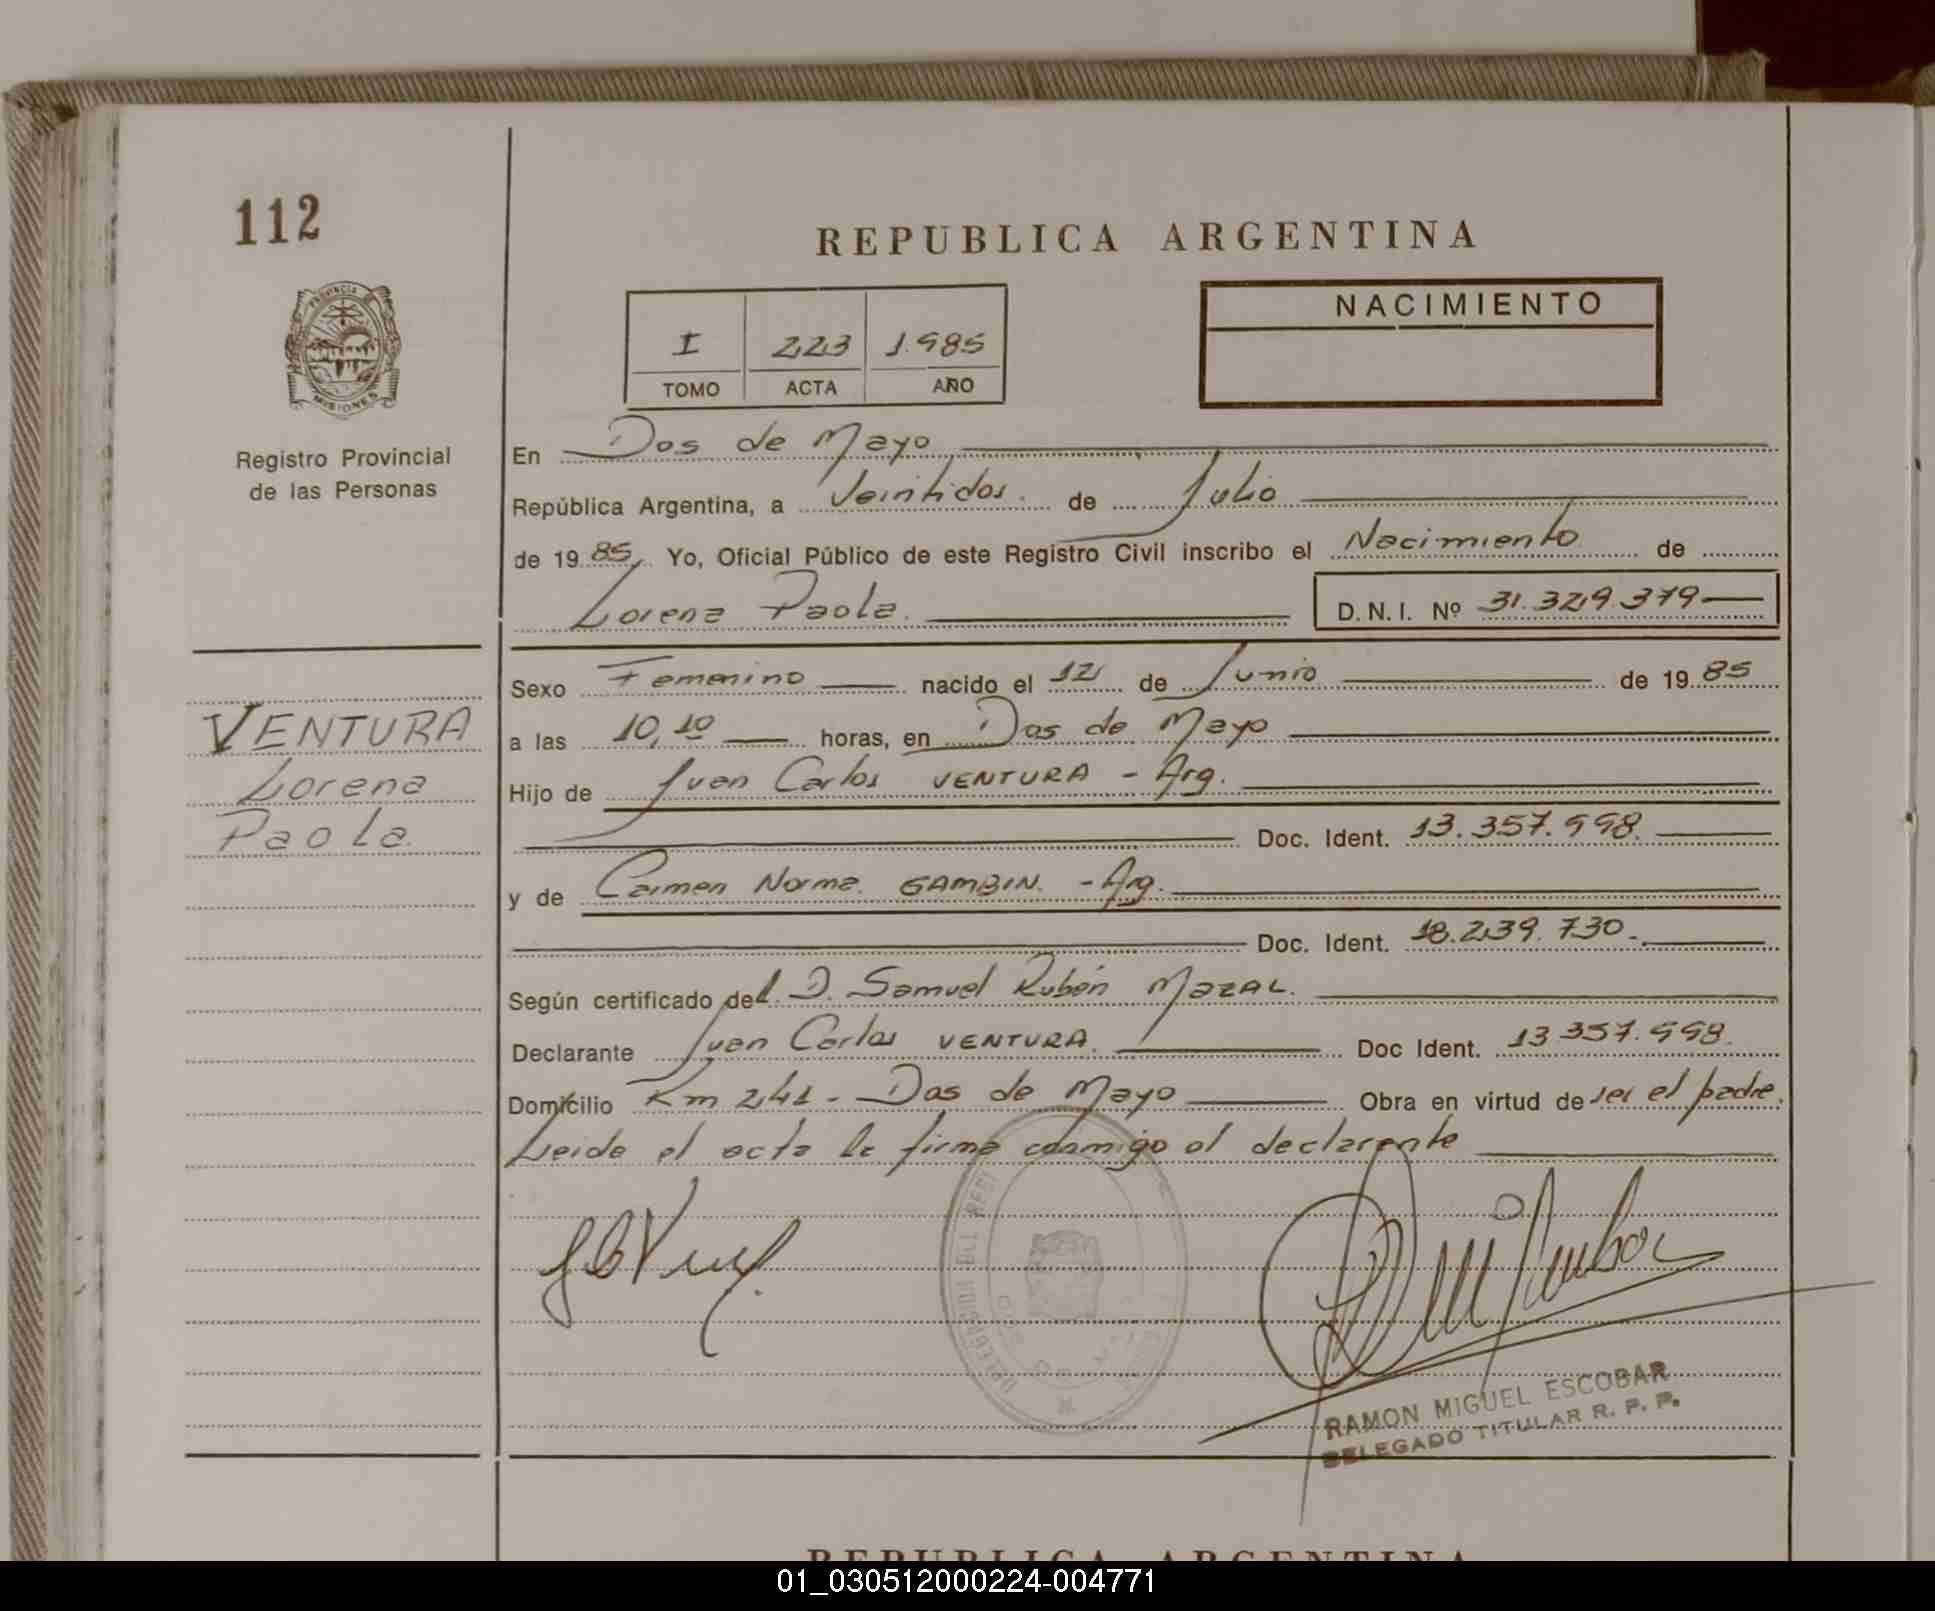 112
REPUBLICA ARGENTINA
PROVINCIA DE
MISIONES
Registro Provincial
de las Personas
I 223 1.985
TOMO ACTA AÑO
NACIMIENTO
En Dos de Mayo
República Argentina, a Veintidos. de Julio
de 1985, Yo, Oficial Público de este Registro Civil inscribo el Nacimiento de
Lorena Paola. D.N.I. Nº 31.329.379
VENTURA
Lorena
Paola.
Sexo Femenino nacido el 12 de Junio de 1985
a las 10,10 horas, en Dos de Mayo
Hijo de Juan Carlos VENTURA - Arg.
Doc. Ident. 13.357.998.
y de Carmen Norma. GAMBIN. - Arg.
Doc. Ident. 18.239.730.
Según certificado del. D. Samuel Rubén MAZAL.
Declarante Juan Carlos VENTURA. Doc Ident. 13.357.998.
Domicilio Km 241 - Dos de Mayo Obra en virtud de ser el padre.
Leida el acta la firma conmigo el declarente
DELEGACION DEL REGI
RAMON MIGUEL ESCOBAR
DELEGADO TITULAR R. P. P.
REPUBLICA ARGENTINA
01_030512000224-004771